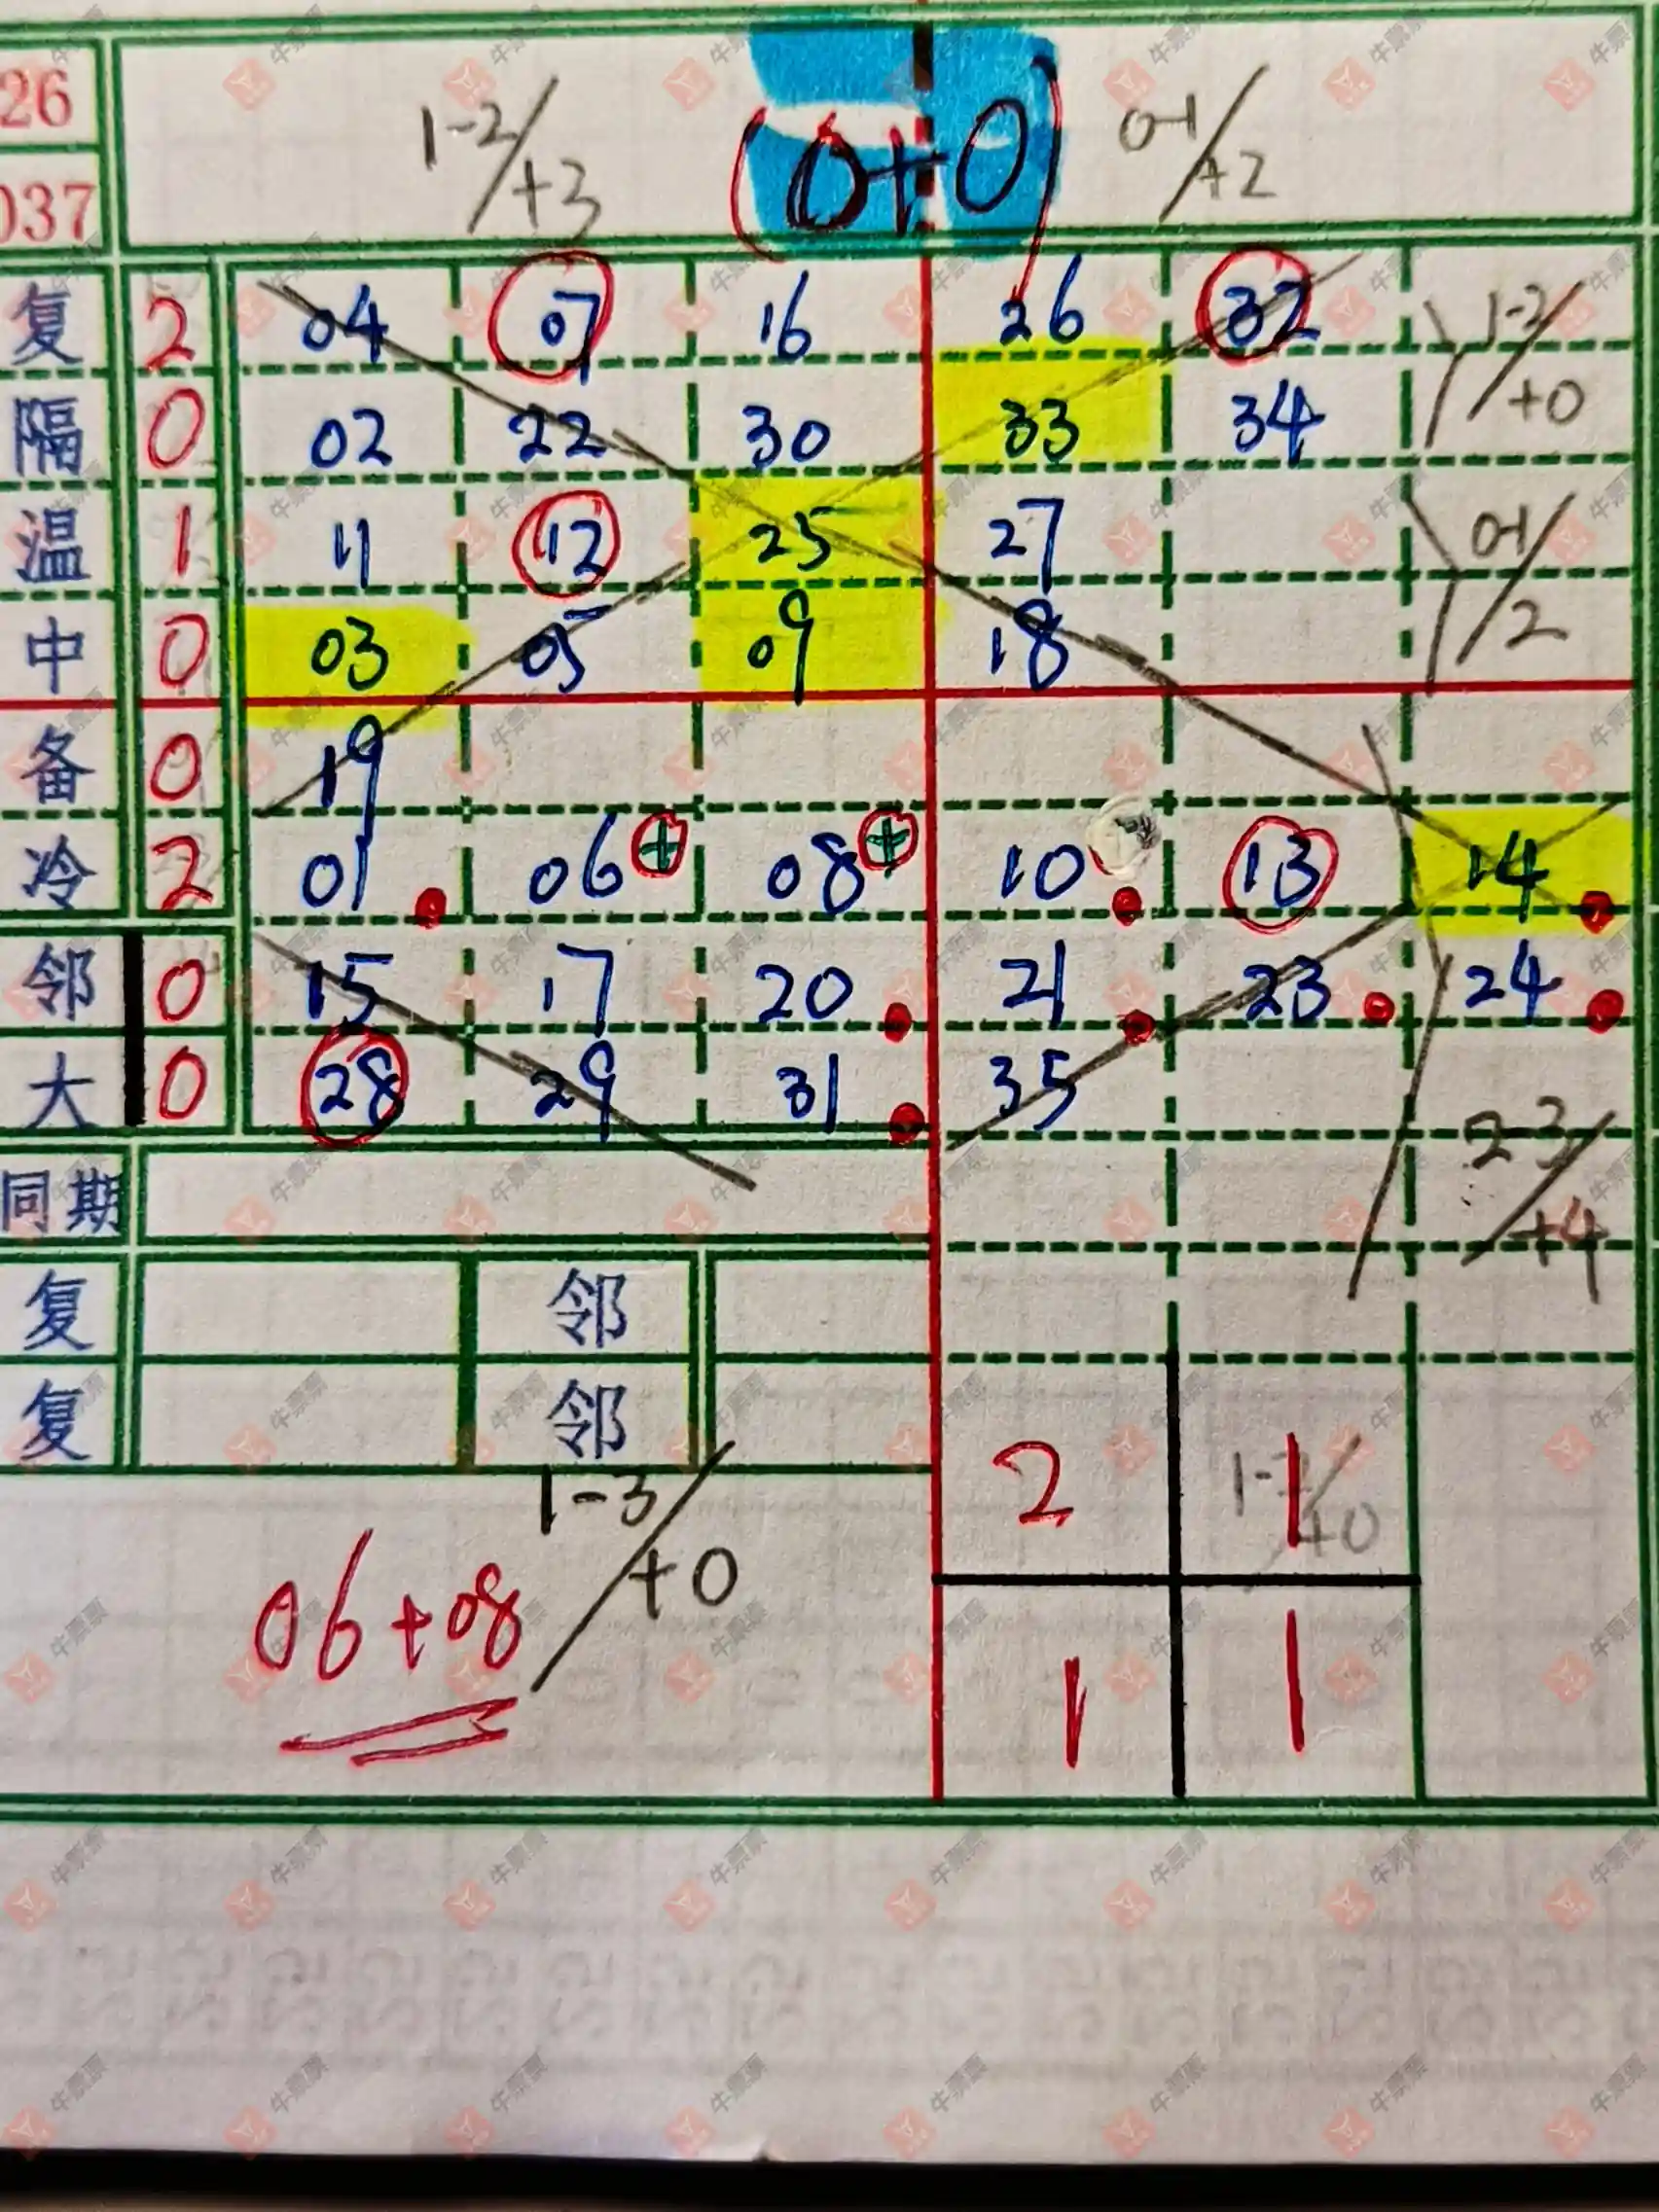 26
037
1-2/+3 (0+0) 0-1/+2
复 2 04 07 16 26 32 1-2/+0
隔 0 02 22 30 33 34
温 1 11 12 25 27 0-1/2
中 0 03 05 09 18
备 0 19
冷 2 01 06 + 08 + 10 13 14
邻 0 15 17 20 21 23 24
大 0 28 29 31 35 2-3/+4
同期
复 邻
复 邻
2 1
1-3/+0
06+08
1 1
牛票票